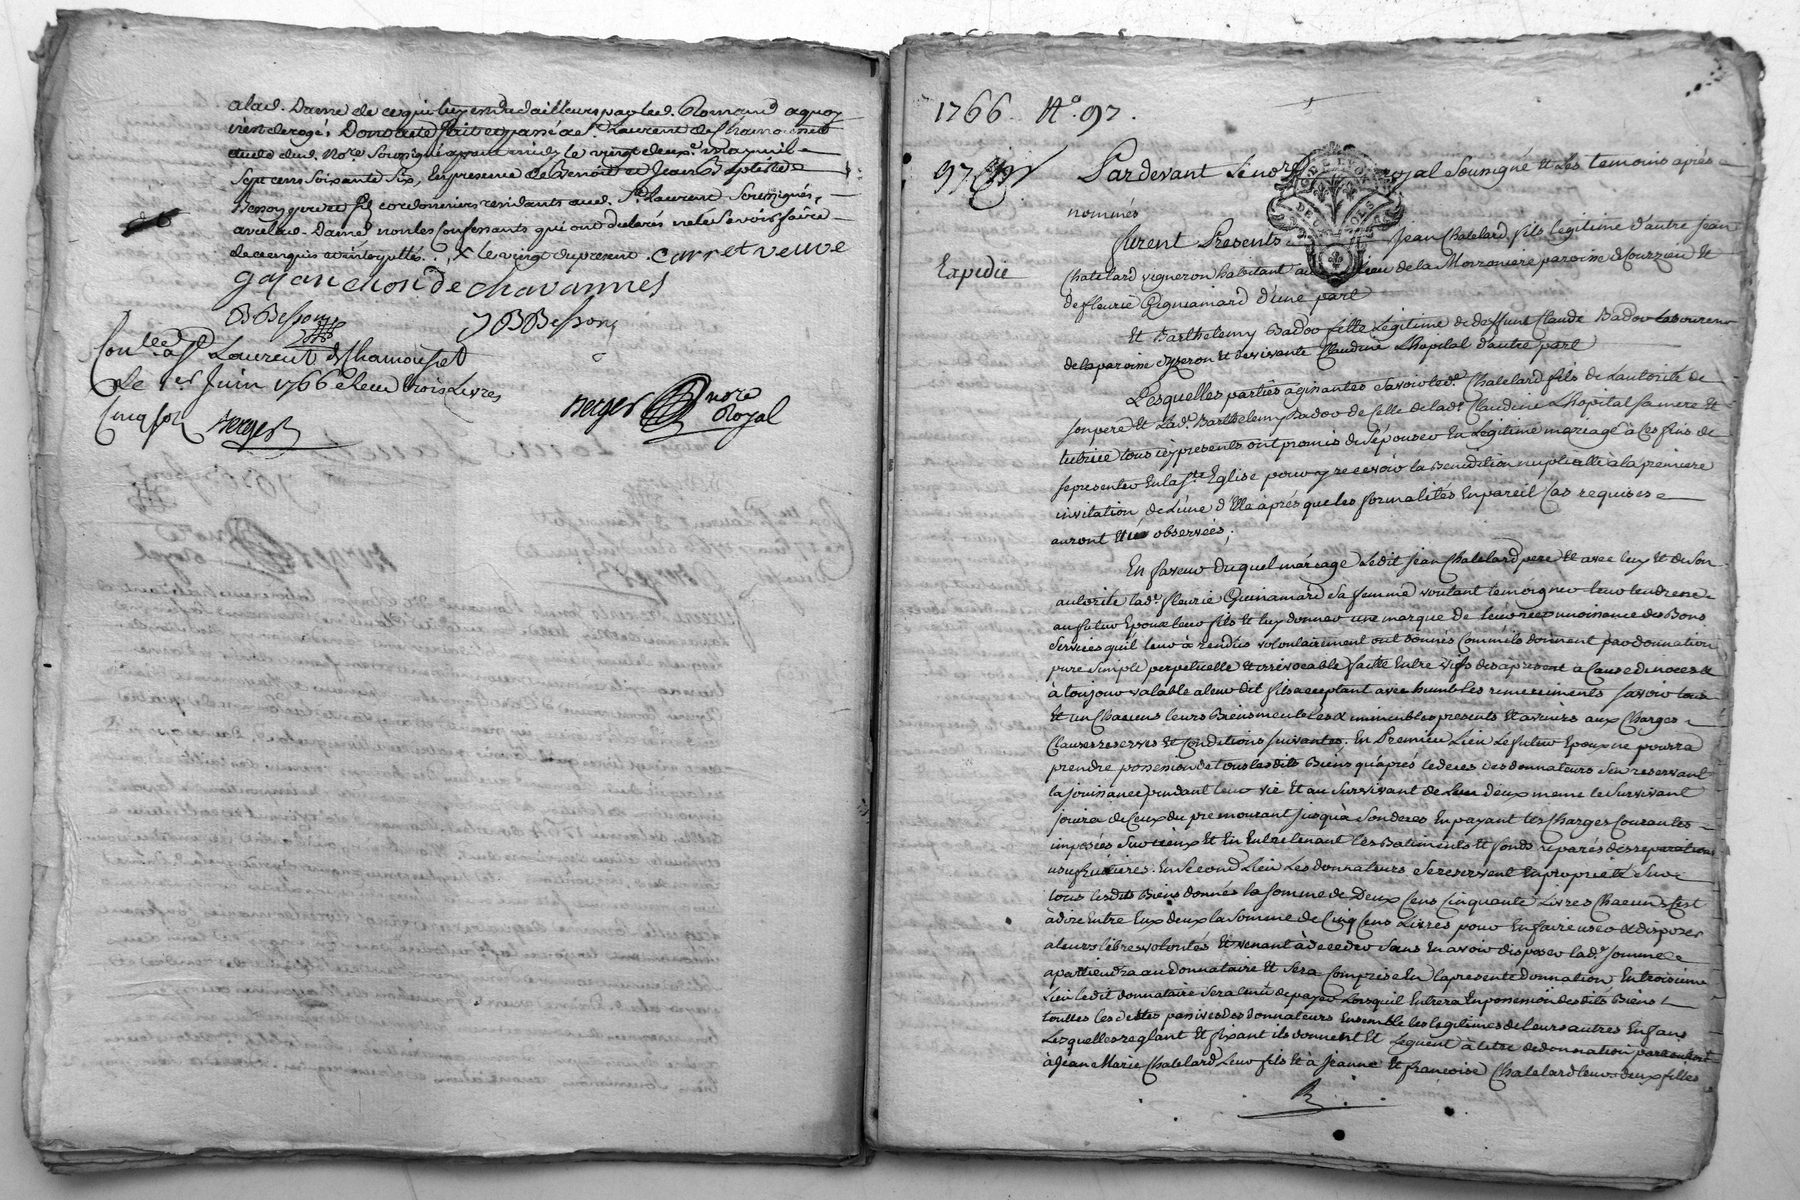 alad. Dame de cequi luy en du d'ailleurs par led. Romand aquoy
n'est derogé, Dont acte fait et passé a St. Laurent de Chamousset
etude dud. Nore. Soussigné apres midy le vingt deuxe. may mil
Sept cens soixante Six, En presence de Benoit et Jean Baptiste
Besson pere et fils cordonniers residants aud. St. Laurent Soussignés,
avec lad. Dame non les Confessants qui ont declarés ne le Scavoir faire
de ce enquis et interpellés. X le vingt du present. carret veuve
gajan chol de chavannes
B Besson
J B Besson
Conlée a St. Laurent de Chamousset
Le 1er Juin 1766 Receu trois Livres
Cinq sols Berger
Berger nore
Royal
1766 No. 97.
97
Pardevant Le nore royal Sousigné et Les temoins aprés
nommés
furent Presents Jean Chatelard fils legitime d'autre Jean
Expedié
Chatelard vigneron habitant au Lieu de la paroisse de Courzieu et
de fleurie Guinamard d'une part
Et Barthelemy Badoo fille Légitime de deffunt Claude Badoo Laboureur
de la paroisse dyzeron et de vivante Claudine Lhopital d'autre part
Lesquelles parties agissantes Savoir led. Chatelard fils de L'autorité de
son pere et Lad. Barthelemy Badoo de Celle de lad. Claudine Lhopital Sa mere et
tutrice tous icy presents ont promis de S'épouser En Légitime mariage à Ces fins de
se presenter En la Ste. Eglise pour y recevoir la Benediction nuptialle à la premiere
invitation de L'une d'Elle aprés que les formalités En pareil Cas requises
auront Eté observées;
En faveur duquel mariage Ledit Jean Chatelard pere Et avec luy Et de Son
autorité lad. fleurie Guinamard Sa femme voulant temoigner leur tendresse
au futur Epoux leur fils Et luy donner une marque de leur reconnoissance des Bons
Services qu'il leur à rendus volontairement ont donnés Comme ils donnent par donnation
pure Simple perpetuelle Et irrévocable faitte Entre vifs des apresent a Cause de noces Et
à toujour valable a leur dit fils acceptant avec humbles remerciments Savoir tous
Et un Chacuns leurs Biens meubles Et immeubles presents Et avenirs aux Charges
Clauses reserves Et Conditions suivantes. En Premier Lieu Le futur Epoux ne pourra
prendre possession de tous les dits Biens qu'aprés le deces des donnateurs S'en reservant
la jouissance pendant leur vie Et au Survivant de leur deux meme le Survivant
jouira de Ceux du premourant jusqu'à Son deces En payant les Charges Courantes
imposées Sur iceux Et En Entretenant les Batiments Et fonds réparés des reparations
usufruitieres. En Second Lieu Les donnateurs Se reservent En propriété Sur
tous lesdits Biens donnés la Somme de Deux Cens Cinquante Livres Chacun C'est
à dire Entre Eux deux la Somme de Cinq Cens Livres pour En faire user Et disposer
a leurs libres volontés Et venant à deceder Sans En avoir disposer lad. Somme
apartiendra au donnataire Et Sera Comprise En la presente donnation En troisieme
Lieu ledit donnataire Sera tenu de payer Lorsquil Entrera En possession des dits Biens
touttes les dettes passives des donnateurs Ensemble les legitimes de leurs autres Enfans
Lesquelles reglant Et fixant ils donnent Et Léguent à titre de donnation
à Jean Marie Chatelard Leur fils Et à Jeanne Et françoise Chatelard leurs deux filles